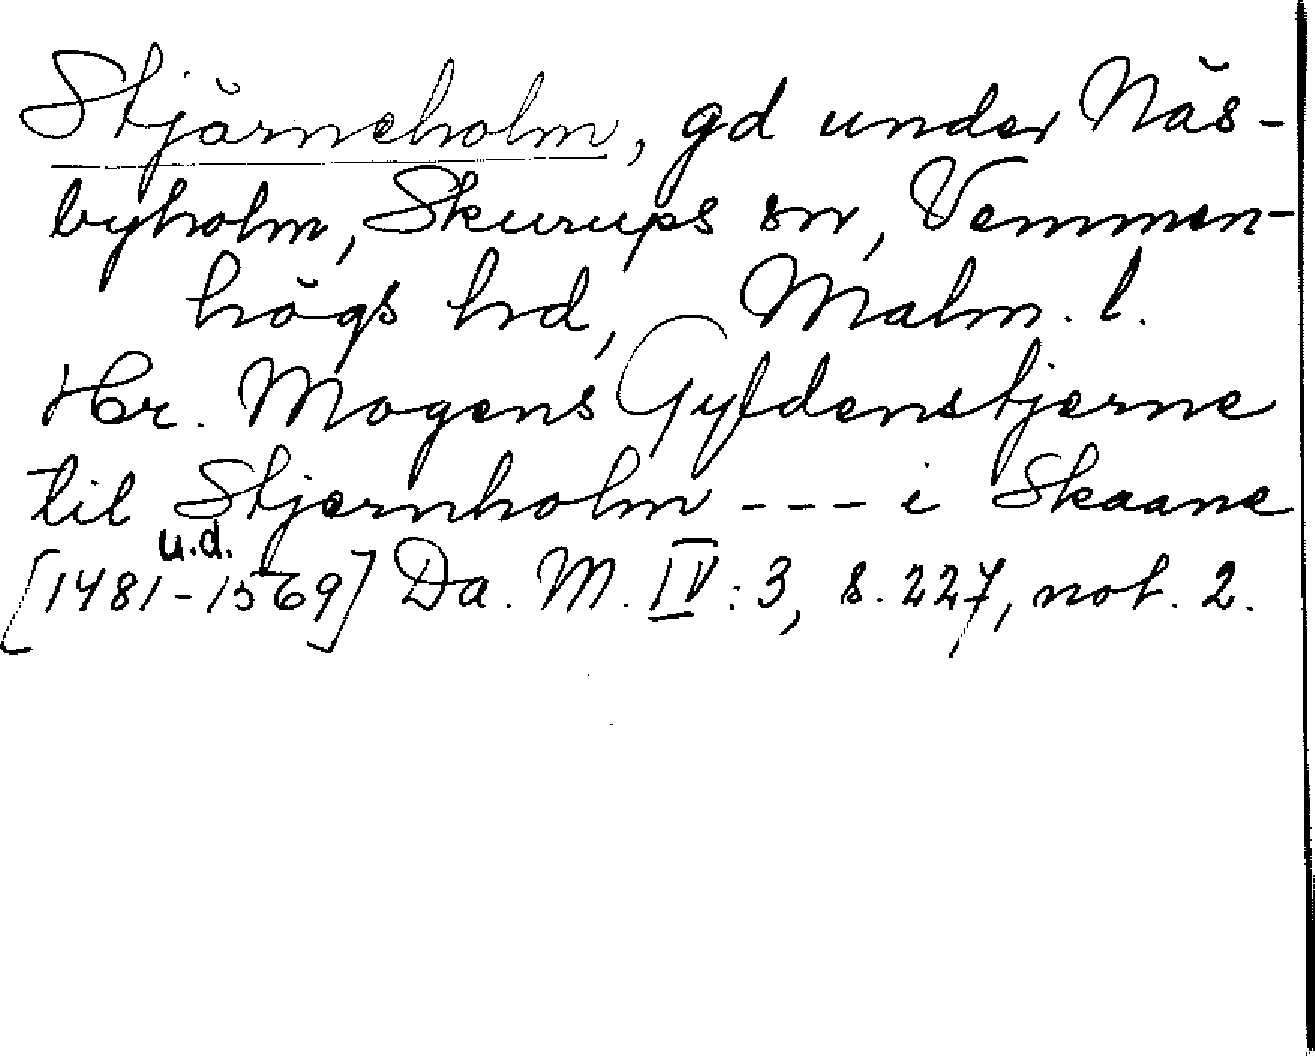 Stjärneholm, gd under Näs-
byholm, Skurups sn, Vemmen-
högs hd, Malm. l.
Hr. Mogens Gyldenstjerne
til Stjernholm --- i Skaane
u.d.
[1481-1569] Da. M. IV: 3, s. 227, not. 2.